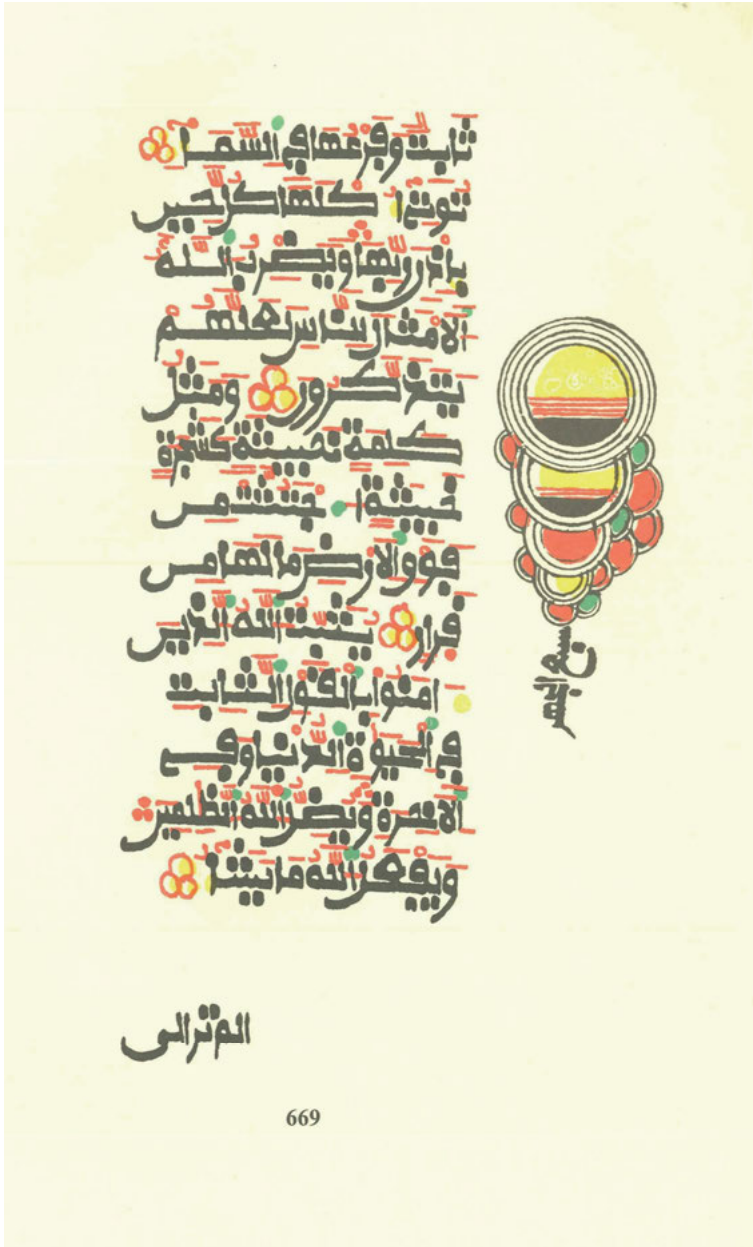 ثابت وفرعها في السما
توتي اكلها كل حين
باذن ربها ويضرب الله
الامثال للناس لعلهم
يتذكرون ومثل
كلمة خبيثة كشجرة
خبيثة اجتثت من
فوق الارض ما لها من
قرار يثبت الله الذين
امنوا بالقول الثابت
في الحيوة الدنيا وفي
الاخرة ويضل الله الظلمين
ويفعل الله ما يشا
الم تر الى
669